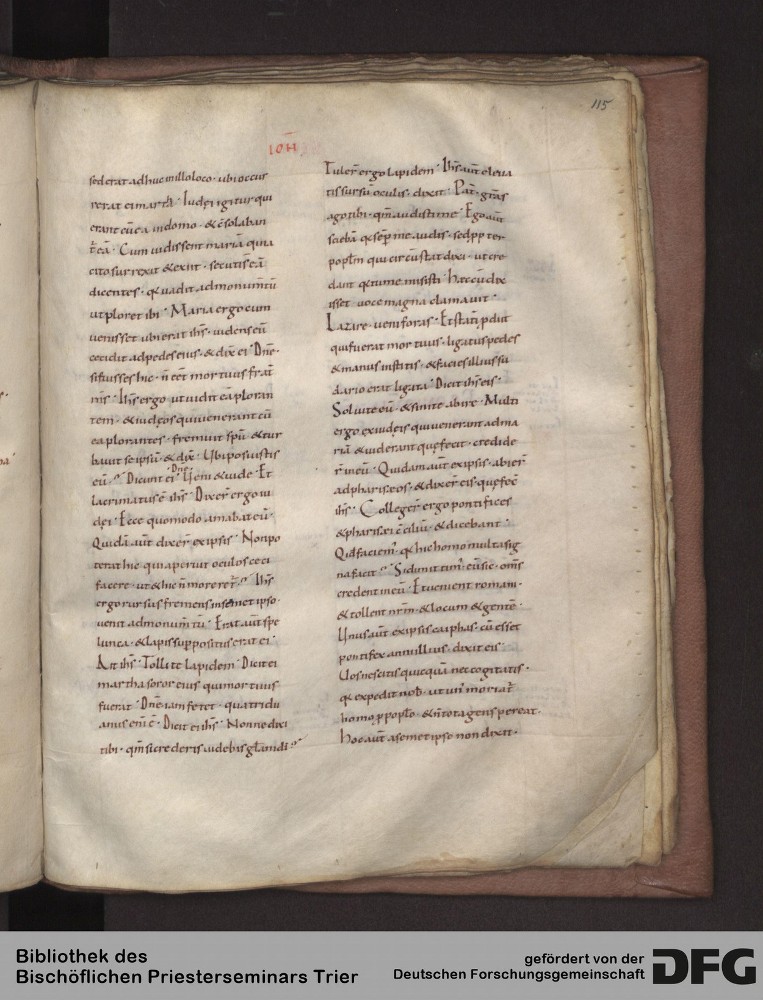 115
IOH̄
sed erat adhuc in illo loco · ubi occur
rerat ei martha · Iudęi igitur qui
erant cū ea in domo · & c̄solaban
t̄ eā · Cum uidissent mariā quia
cito surrexit & exiit · secuti s̄ eā
dicentes · q̄ uadit ad monum̄tū
ut ploret ibi · Maria ergo cum
uenisset ubi erat ih̄s · uidens eū
cecidit ad pedes eius · & dix̄ ei · Dn̄e ·
si fuisses hic · n̄ eēt mortuus frat̄
m̄s · Ih̄s ergo ut uidit eā ploran
tem · & iudęos qui uenerant cū
ea plorantes · fremuit sp̄u · & tur
bauit se ipsū · & dix̄ · Ubi posuistis
eū · Dicunt ei · Dn̄e Ueni & uide · Et
lacrimatus ē ih̄s · Dixer̄ ergo iu
dęi · Ecce quomodo amabat eū ·
Quidā aūt dixer̄ ex ipsis · Non po
terat hic qui aperuit oculos cęci
facere · ut & hic n̄ morerer̄ · Ih̄s
ergo rursus fremens in semet ipso ·
uenit ad monum̄tū · Erat aūt spe
lunca · & lapis suppositus erat ei ·
Ait ih̄s · Tollite lapidem · Dicit ei
martha soror eius qui mortuus
fuerat · Dn̄e iam fetet · quatridu
anus enī ē · Dicit ei ih̄s · Nonne dixi
tibi · qm̄ si credideris uidebis glām dī ·
Tuler̄ ergo lapidem · Ih̄s aūt eleua
tis sursū oculis · dixit · Pat̄ · grās
ago tibi · qm̄ audisti me · Ego aūt
sciebā q̄ sēp me audis · sed pp̄ ter
popl̄m qui circū stat dixi · ut cre
dant q̄ tu me misisti · Hęc cū dix
isset · uoce magna clamauit ·
Lazare · ueni foras · Et statī pdiit
qui fuerat mortuus · ligatus pedes
& manus institis · & facies illius su
dario erat ligata · Dicit ih̄s eis ·
Soluite eū · & sinite abire · Multi
ergo ex iudęis qui uenerant ad ma
riā & uiderant quę fecit · credide
r̄ in eū · Quidam aūt ex ipsis · abier̄
ad pharisęos · & dixer̄ eis · quę fec̄
ih̄s · Colleger̄ ergo pontifices
& pharisęi c̄ciliū · & dicebant ·
Qid facim̄ · q̄ hic homo multa sig
na facit · Si dimittim̄ eū sic · om̄s
credent in eū · Et uenient romani ·
& tollent nr̄m · & locum & gentē ·
Unus aūt ex ipsis caiphas · cū esset
pontifex anni illius · dixit eis ·
Uos nescitis quicquā nec cogitatis ·
q̄ expedit nob̄ · ut un̄ moriat̄
homo p poplo · & n̄ tota gens pereat ·
Hoc aūt a semet ipso non dixit ·
Bibliothek des
Bischöflichen Priesterseminars Trier
gefördert von der
Deutschen Forschungsgemeinschaft
DFG